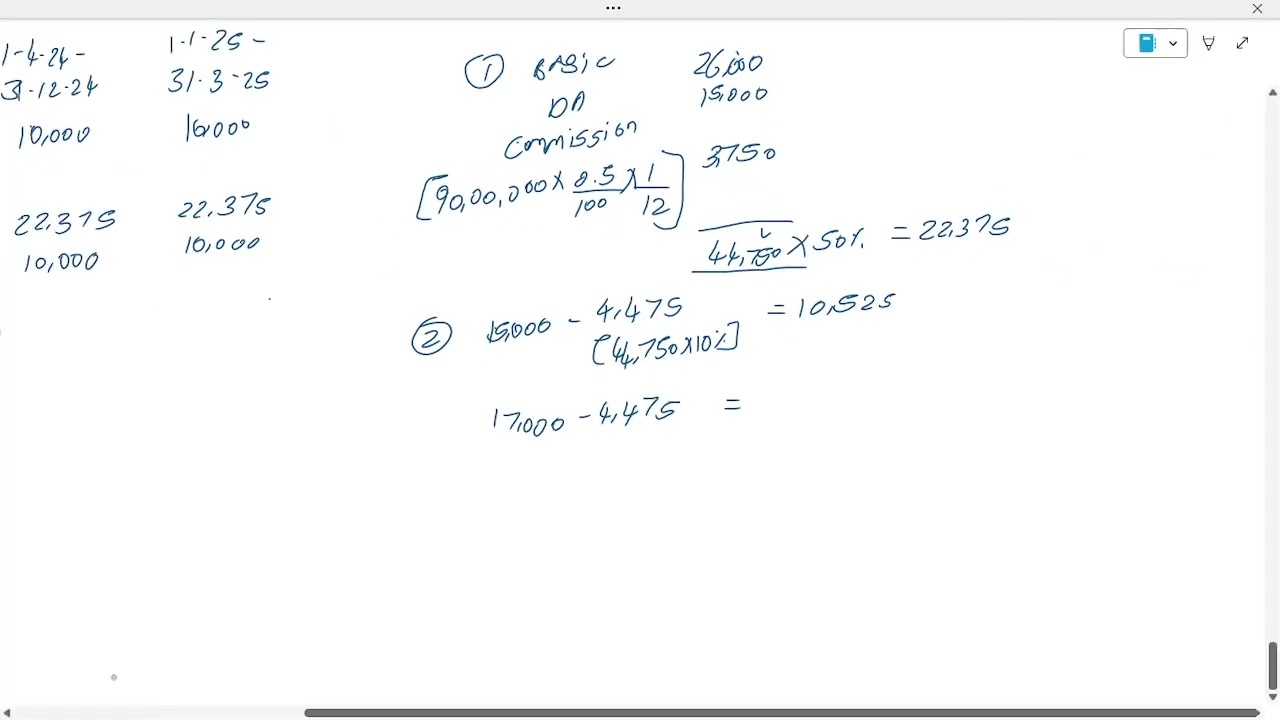 1-4-24 -
31-12-24
10,000
22,375
10,000
1-1-25 -
31-3-25
10,000
22,375
10,000
① BASIC 26,000
DA 15,000
Commission
[90,00,000 × 0.5/100 × 1/12] 3,750
44,750 × 50% = 22,375
② 15,000 - 4,475 = 10,525
[44,750×10%]
17,000 - 4,475 =